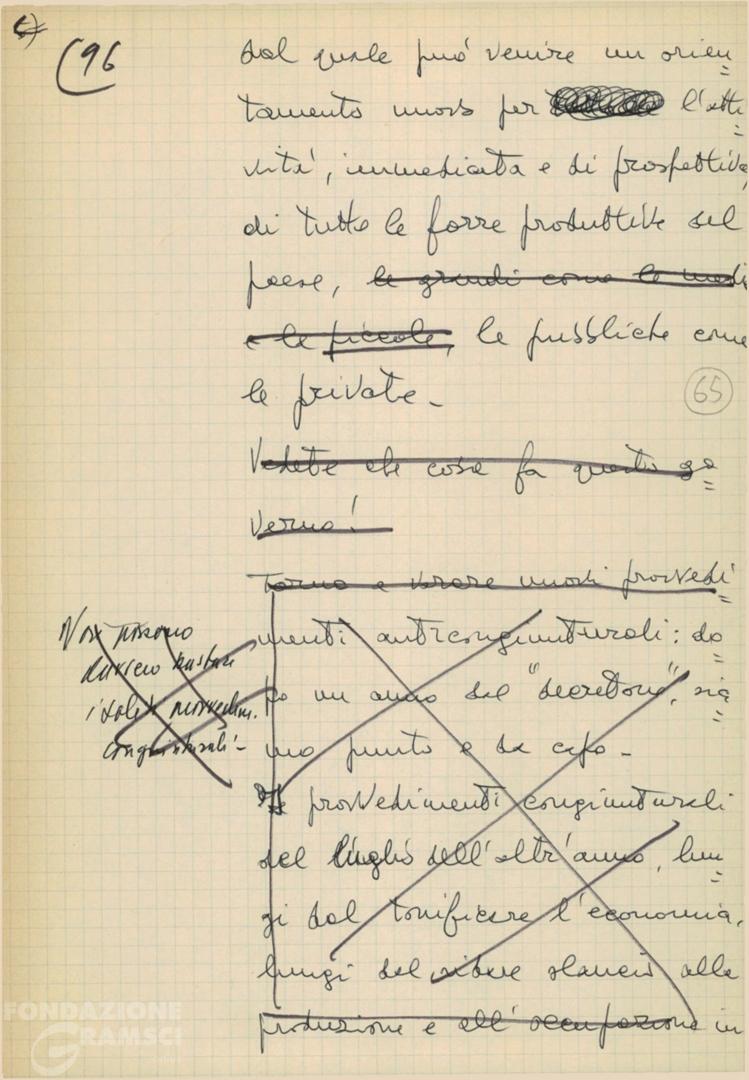 5)
(96
dal quale può venire un orien=
tamento nuovo per l'atti=
vità, immediata e di prospettiva,
di tutte le forze produttive del
paese, le grandi come le medi
e le piccole, le pubbliche come
le private -
65
Vedete che cosa fa questo go=
verno!
Torna a varare nuovi provvedi=
menti anticongiunturali: do=
po un anno dal "decretone", sia=
mo punto e da capo -
Non possono
davvero bastare
i soliti provvedim.
congiunturali -
I provvedimenti congiunturali
del luglio dell'altr'anno, lun=
gi dal tonificare l'economia,
lungi dal ridare slancio alla
produzione e all'occupazione in
FONDAZIONE
GRAMSCI